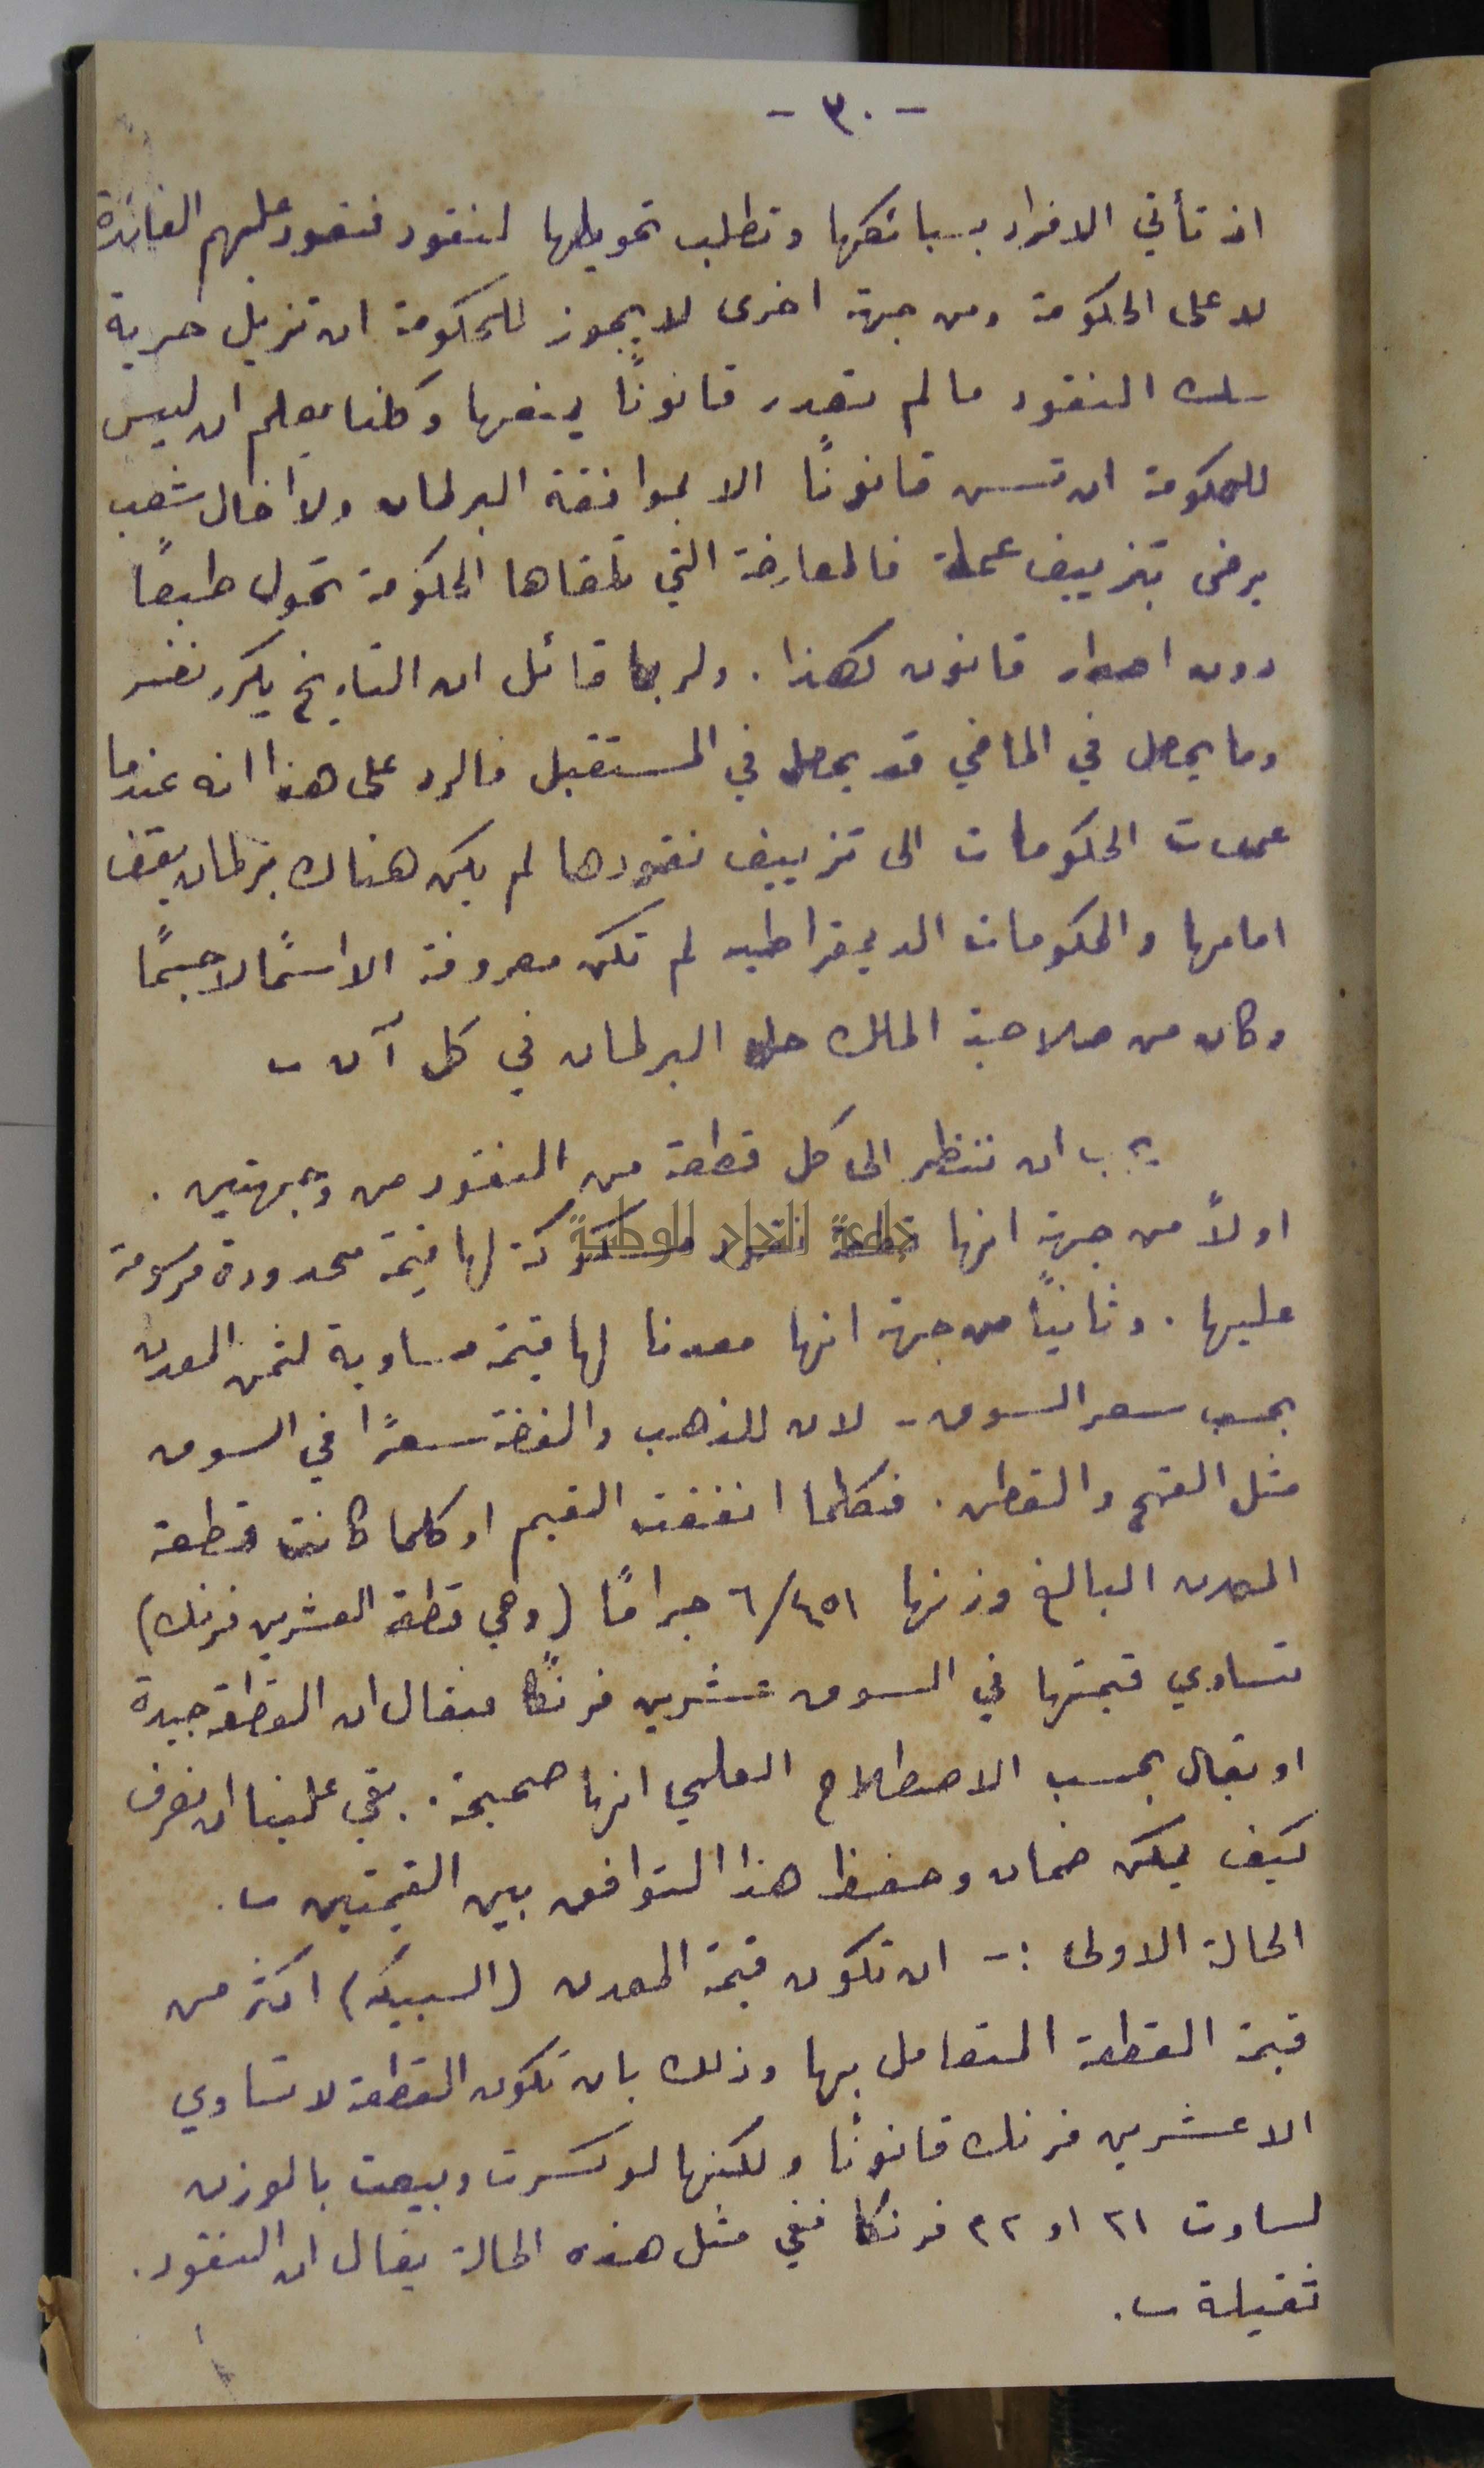 - ٣٠ -
اذ تأتي الافراد بسبائكها وتطلب تحويلها لنقود فتعود عليهم الفائدة
لا على الحكومة ومن جهة اخرى لا يجوز للحكومة ان تزيل حرية
سك النقود ما لم تصدر قانونًا يمنعها وكلنا يعلم ان ليس
للحكومة ان تسن قانونًا الا بموافقة البرلمان ولا اخال شعب
يرضى بتزييف عملة فالمعارضة التي تلقاها الحكومة تحول طبعًا
دون اصدار قانون كهذا . ولربما قائل ان التاريخ يكرر نفسه
وما يحصل في الماضي قد يحصل في المستقبل فالرد على هذا انه عندما
عمدت الحكومات الى تزييف نقودها لم يكن هناك برلمان يقف
امامها والحكومات الديمقراطيه لم تكن معروفة الا اسمًا لا جسمًا
وكان من صلاحية الملك حل البرلمان في كل آن
يجب ان ننظر الى كل قطعة من النقود من وجهتين .
اولاً من جهة انها قطعة نقود مسكوكة لها قيمة محدودة مرسومة
عليها . وثانيًا من جهة انها معدنا لها قيمة مساوية لثمن المعدن
بحسب سعر السوق - لان للذهب والفضة سعرًا في السوق
مثل القمح والقطن . فكلما اتفقت القيم او كلما كانت قطعة
المعدن البالغ وزنها ٦/٤٥١ جرامًا (وهي قطعة العشرين فرنك)
تساوي قيمتها في السوق عشرين فرنكًا فيقال ان القطعة جيدة
او يقال بحسب الاصطلاح العلمي انها صحيحة . بقي علينا ان نعرف
كيف يمكن ضمان وحفظ هذا التوافق بين القيمتين .
الحالة الاولى :- ان تكون قيمة المعدن (السبيكه) اكثر من
قيمة القطعة المتعامل بها وذلك بان تكون القطعة لا تساوي
الا عشرين فرنك قانونًا ولكنها لو كسرت وبيعت بالوزن
لساوت ٢١ او ٢٢ فرنكا ففي مثل هذه الحالة يقال ان النقود .
ثقيلة .
جامعة النجاح الوطنية